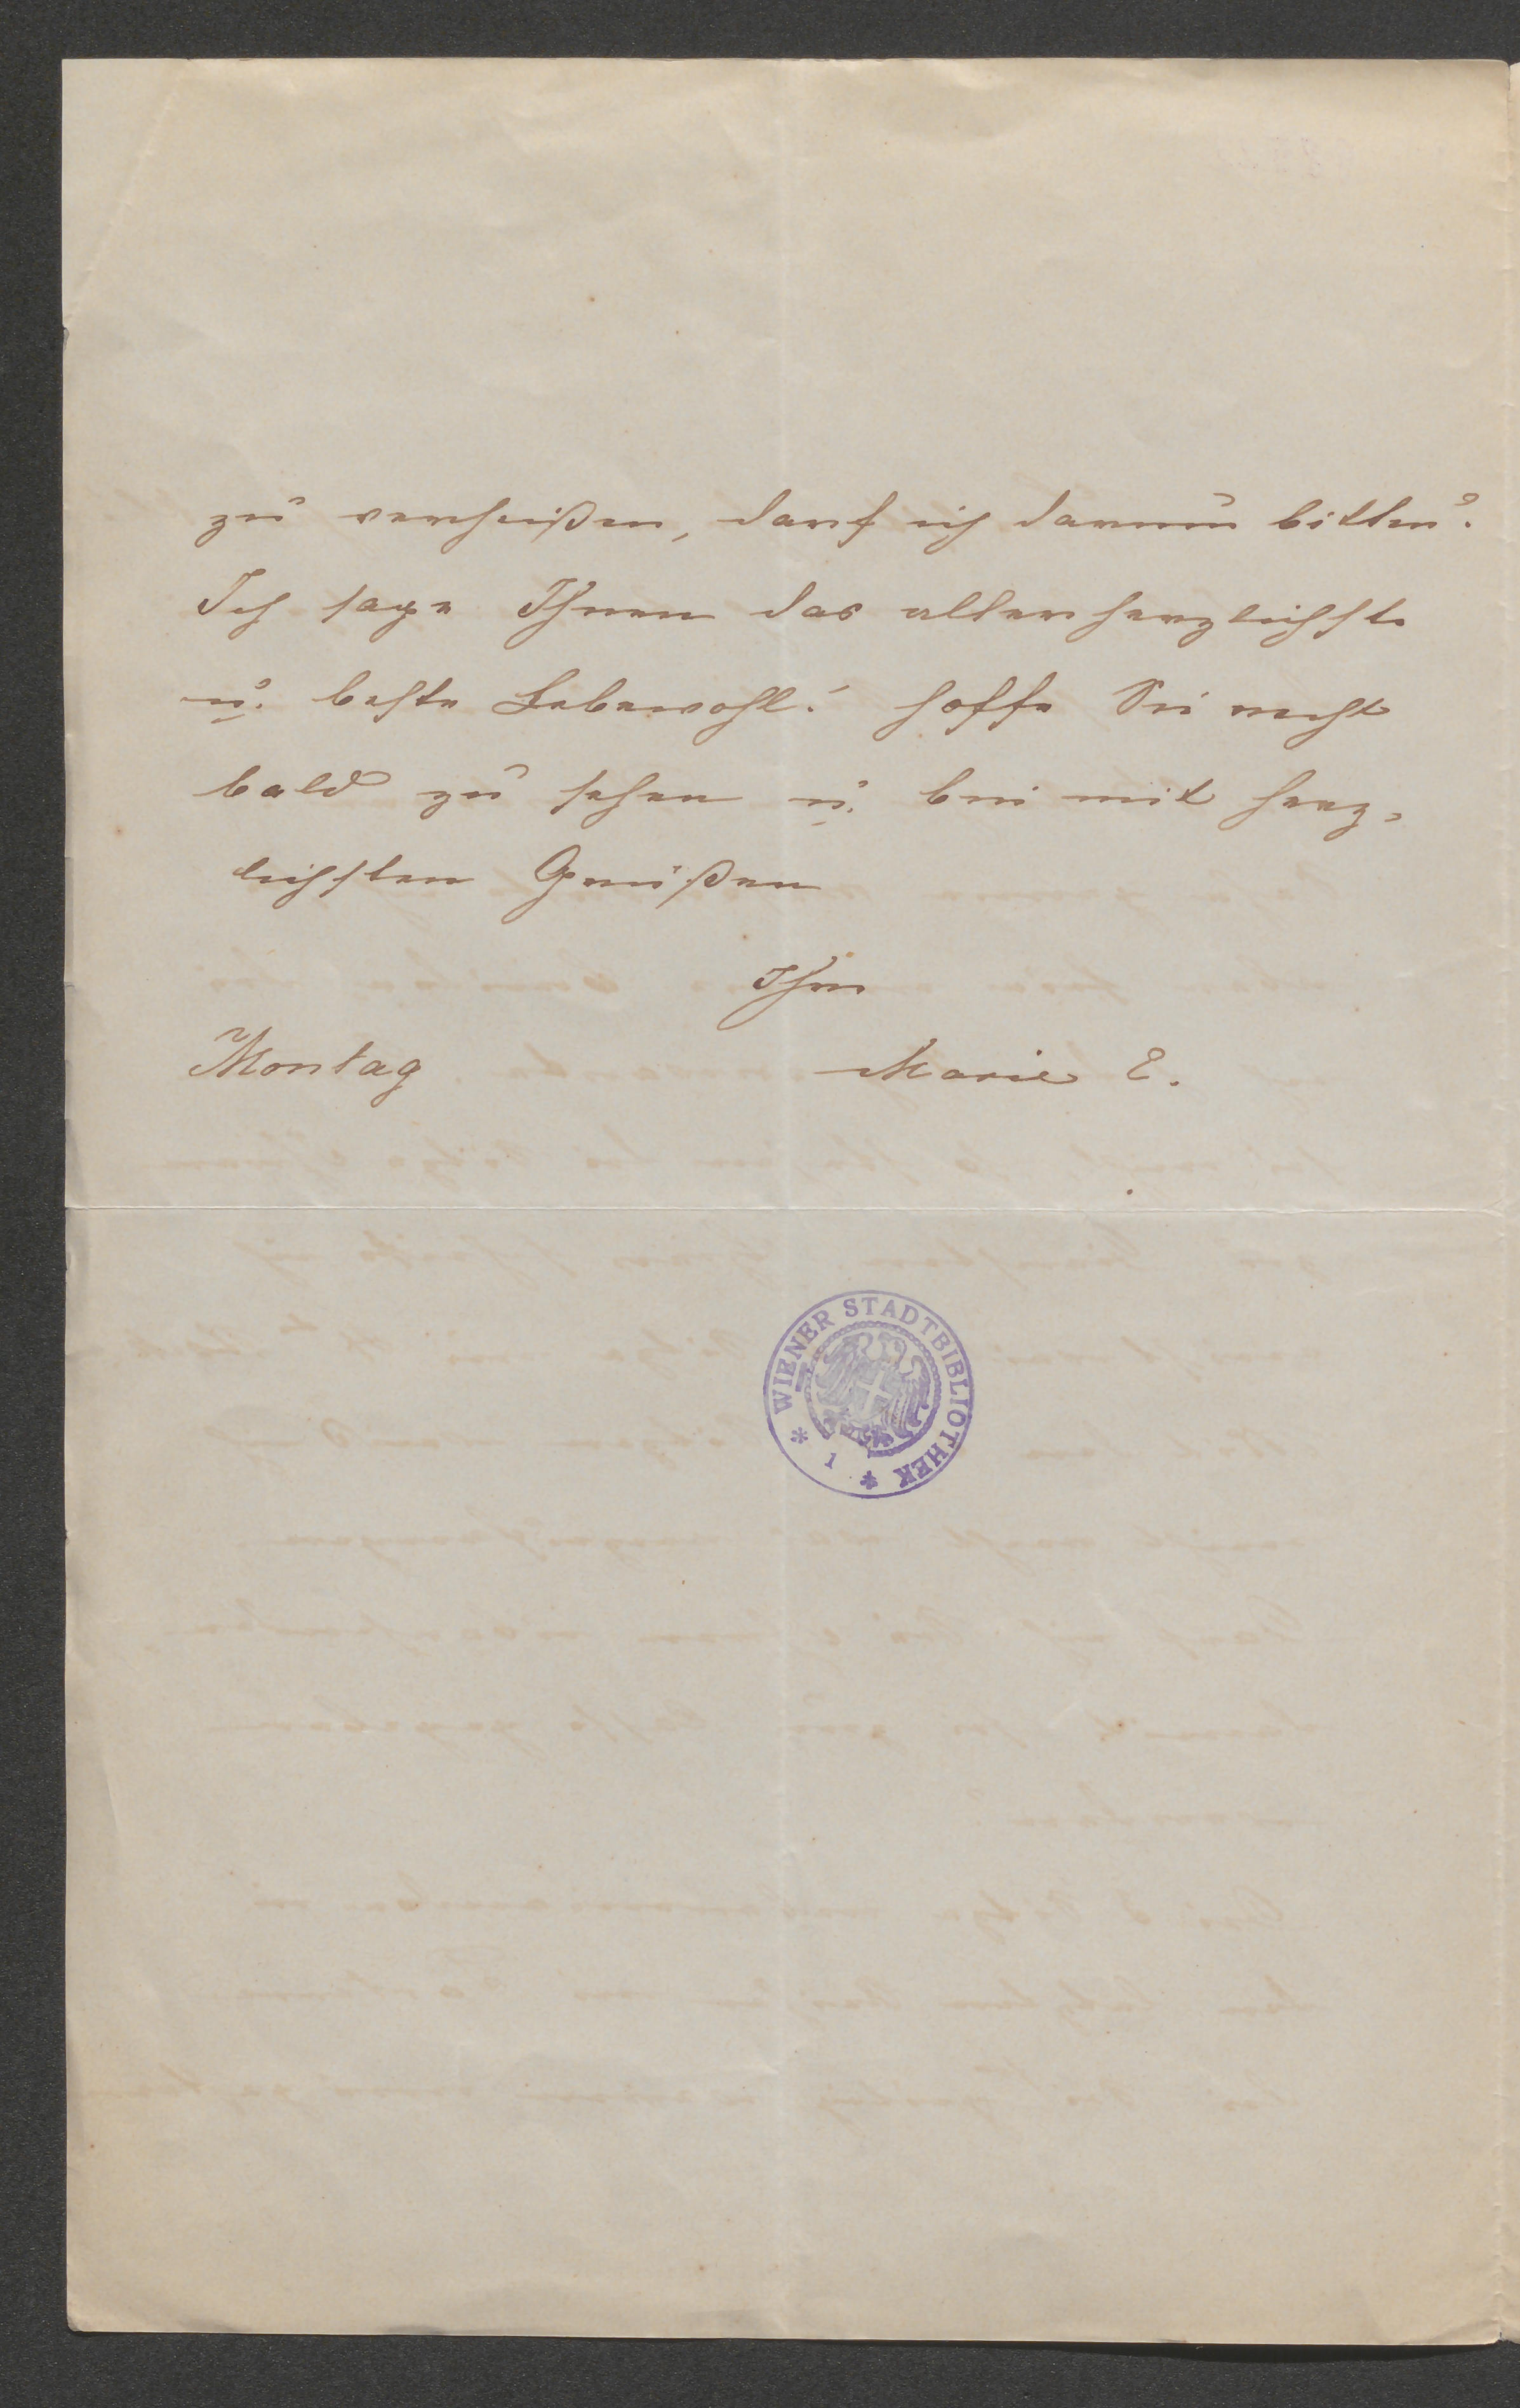 zu verheißen, darf ich darum bitten?
Ich sage Ihnen das allerherzlichste
u. beste Lebewohl! hoffe Sie recht
bald zu sehen u. bin mit herz-
lichsten Grüßen
Ihre
Montag Marie E.
* WIENER STADTBIBLIOTHEK *
1